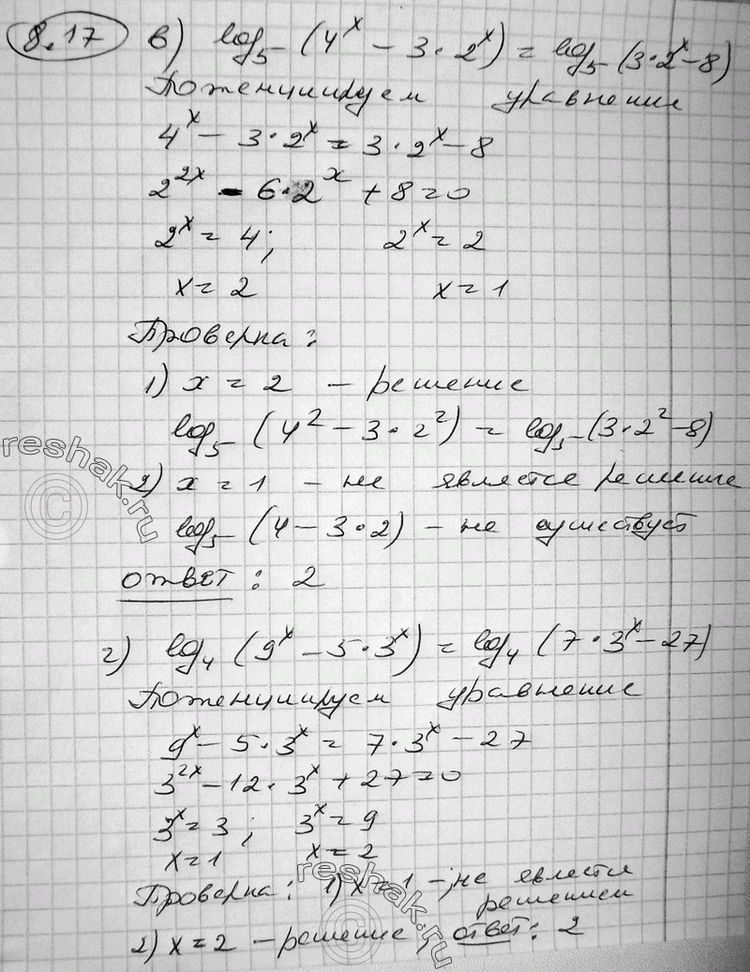 8.17 в) log₅ (4ˣ − 3·2ˣ) = log₅ (3·2ˣ − 8)
Потенциируем уравнение
4ˣ − 3·2ˣ = 3·2ˣ − 8
2²ˣ − 6·2ˣ + 8 = 0
2ˣ = 4; 2ˣ = 2
x = 2 x = 1
Проверка:
1) x = 2 – решение
log₅ (4² − 3·2²) = log₅ (3·2² − 8)
2) x = 1 – не является решение
log₅ (4 − 3·2) – не существует
ответ: 2
г) log₄ (9ˣ − 5·3ˣ) = log₄ (7·3ˣ − 27)
Потенциируем уравнение
9ˣ − 5·3ˣ = 7·3ˣ − 27
3²ˣ − 12·3ˣ + 27 = 0
3ˣ = 3; 3ˣ = 9
x = 1 x = 2
Проверка: 1) x = 1 –, не является
решением
2) x = 2 – решение, ответ: 2
reshak.ru
©
reshak.ru
©